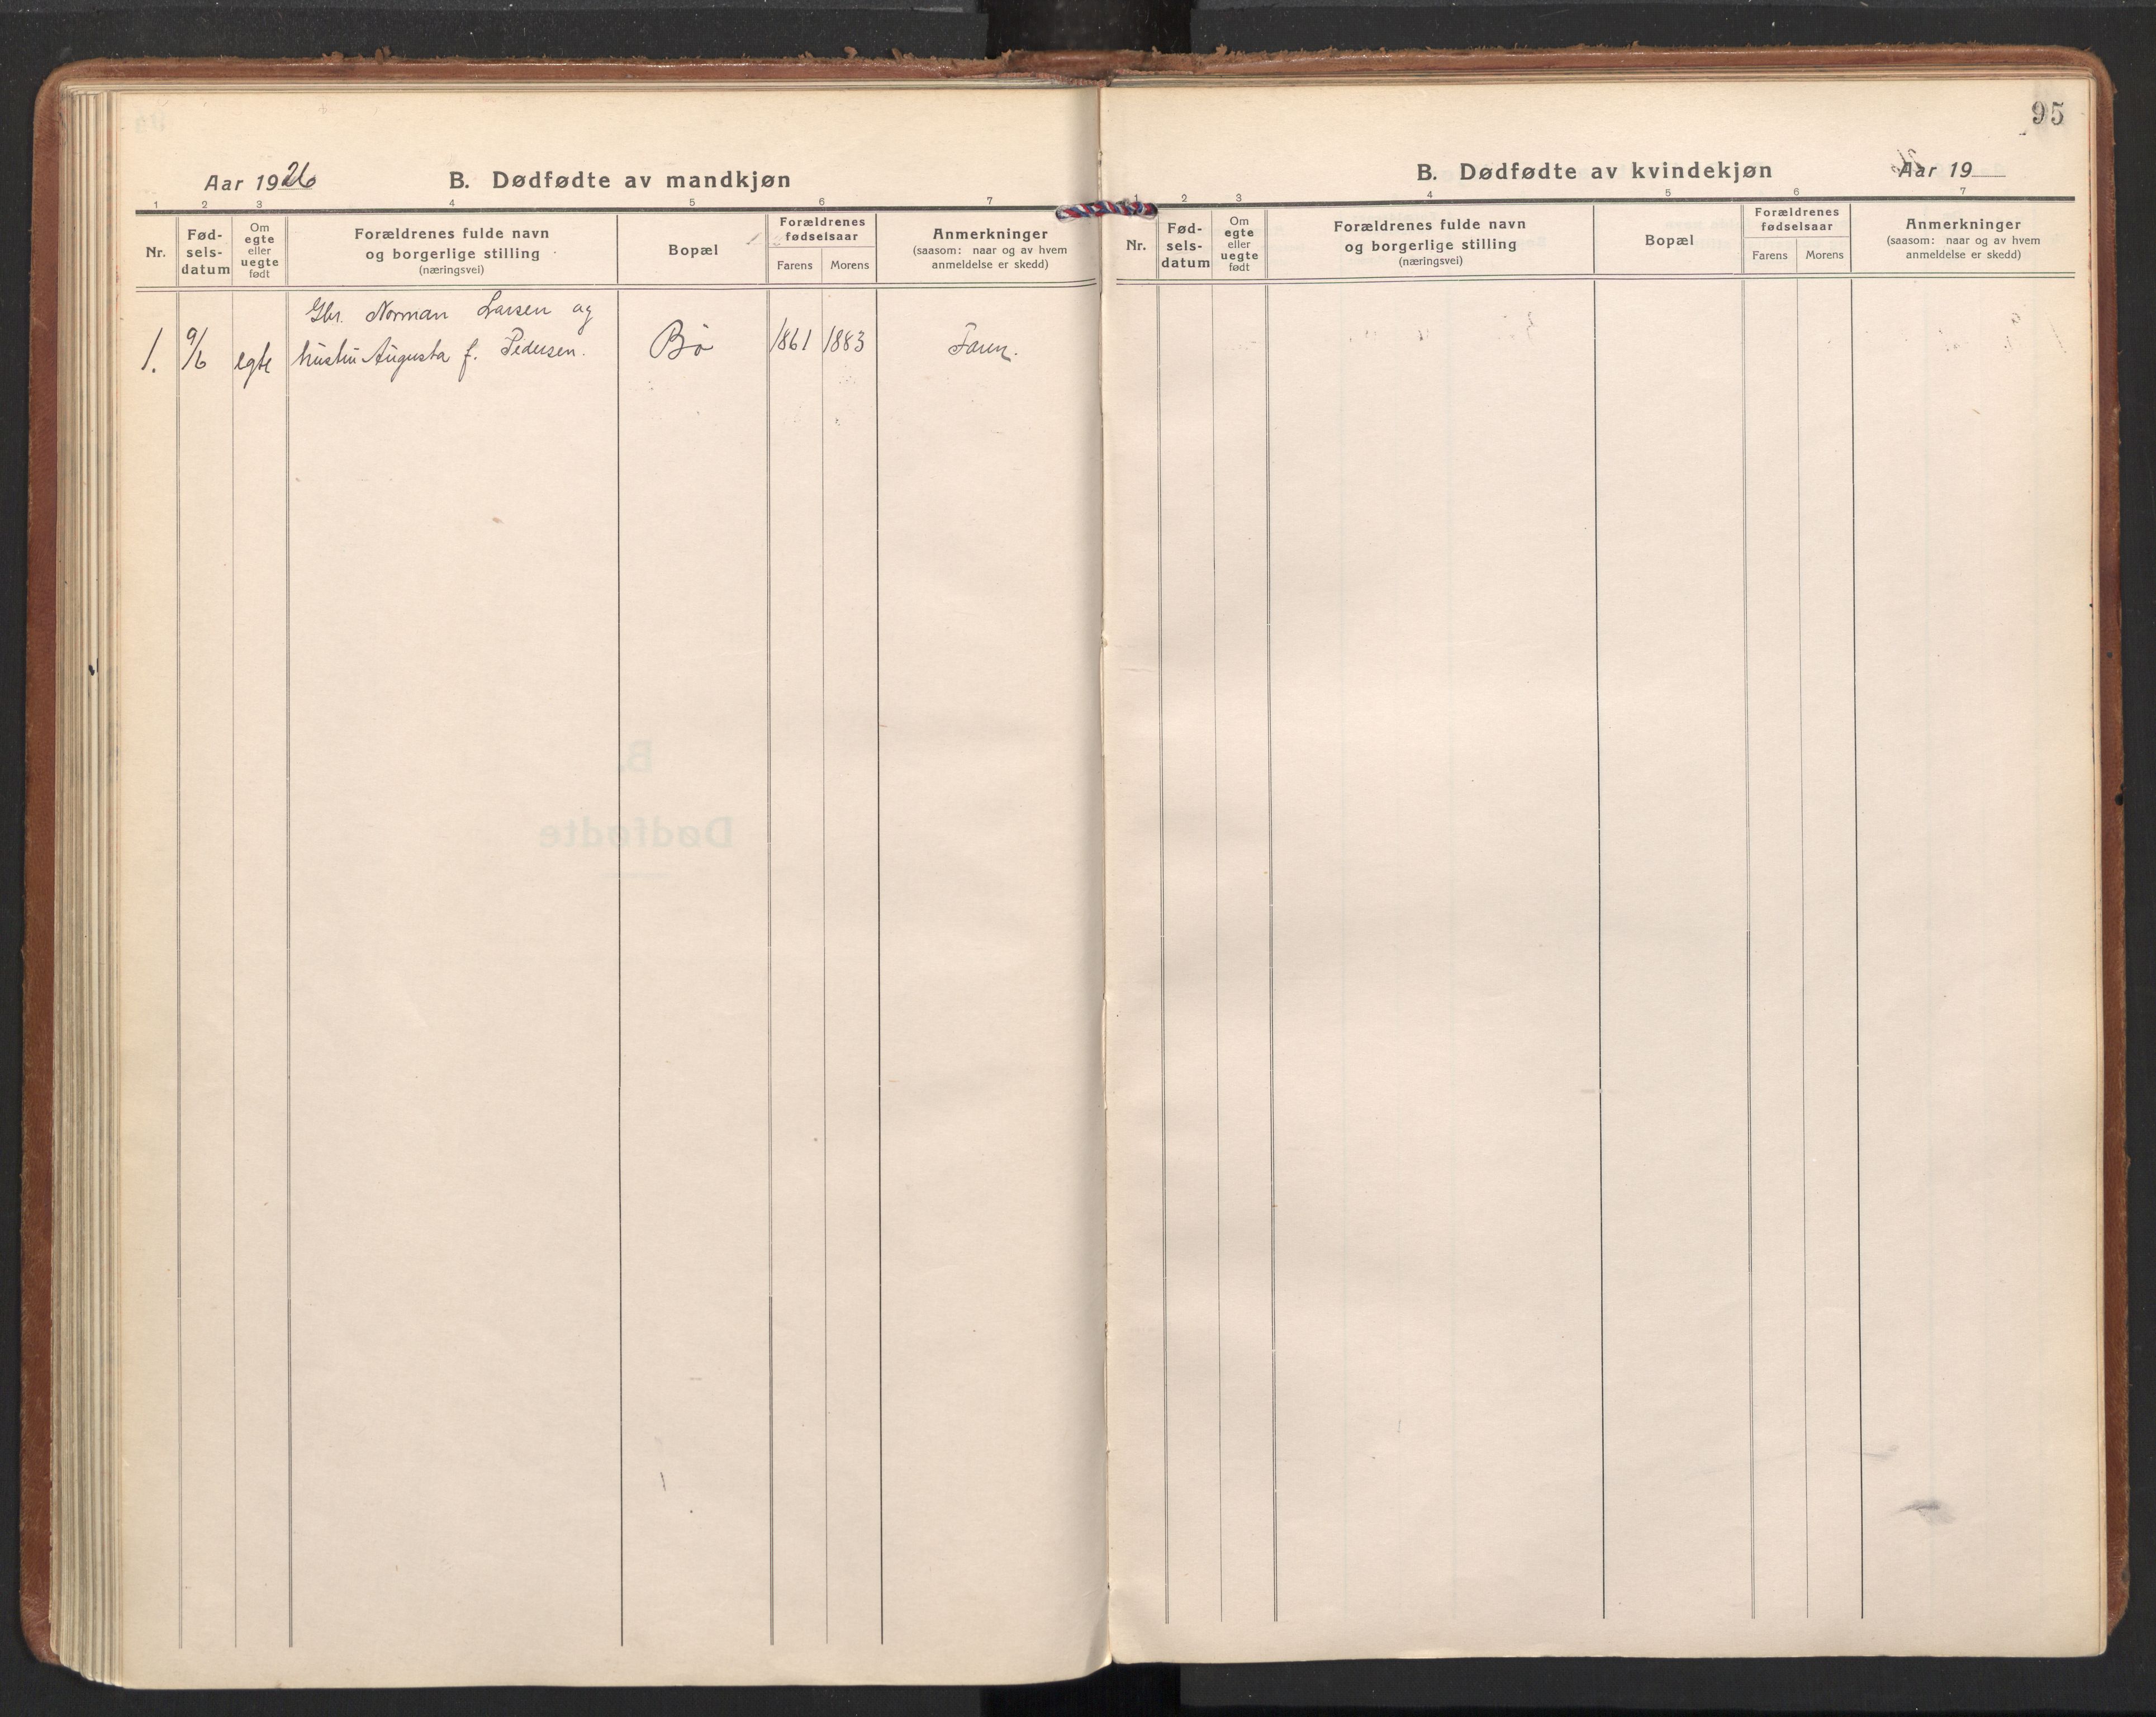 Aar 1926
B. Dødfødte av mandkjøn
1 2 3 4 5 6 7
Nr.
Fød-
sels-
datum
Om
egte
eller
uegte
født
Forældrenes fulde navn
og borgerlige stilling
(næringsvei)
Bopæl
Forældrenes
fødselsaar
Farens Morens
Anmerkninger
(saasom: naar og av hvem
anmeldelse er skedd)
Gbr. Norman Larsen og
1. 9/6 egte hustru Augusta f. Pedersen. Bø 1861 1883 Faren.
95
B. Dødfødte av kvindekjøn
Aar 19
1 2 3 4 5 6 7
Nr.
Fød-
sels-
datum
Om
egte
eller
uegte
født
Forældrenes fulde navn
og borgerlige stilling
(næringsvei)
Bopæl
Forældrenes
fødselsaar
Farens Morens
Anmerkninger
(saasom: naar og av hvem
anmeldelse er skedd)
B.
Dødfødte